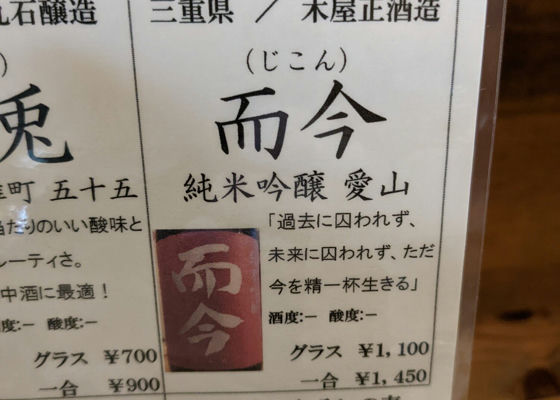 石醸造
兎
町 五十五
たりのいい酸味と
ーティさ。
中酒に最適！
度:− 酸度:−
グラス ￥700
一合 ￥900
三重県 ／ 木屋正酒造
（じこん）
而今
純米吟醸 愛山
「過去に囚われず、
未来に囚われず、ただ
今を精一杯生きる」
酒度:− 酸度:−
グラス ￥1,100
一合 ￥1,450
而今